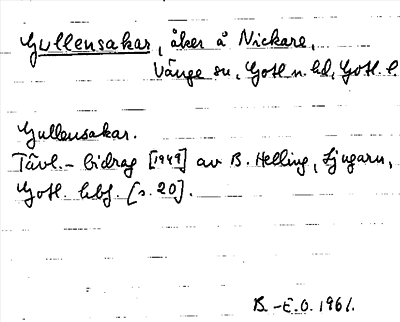 Gullensakar, åker å Nickare,
Vänge sn, Gotl. n. hd, Gotl. l.
Gullensakar.
Tävl.-bidrag [1949] av B. Helling, Ljugarn,
Gotl. [s. 20].
B.-E.O. 1961.